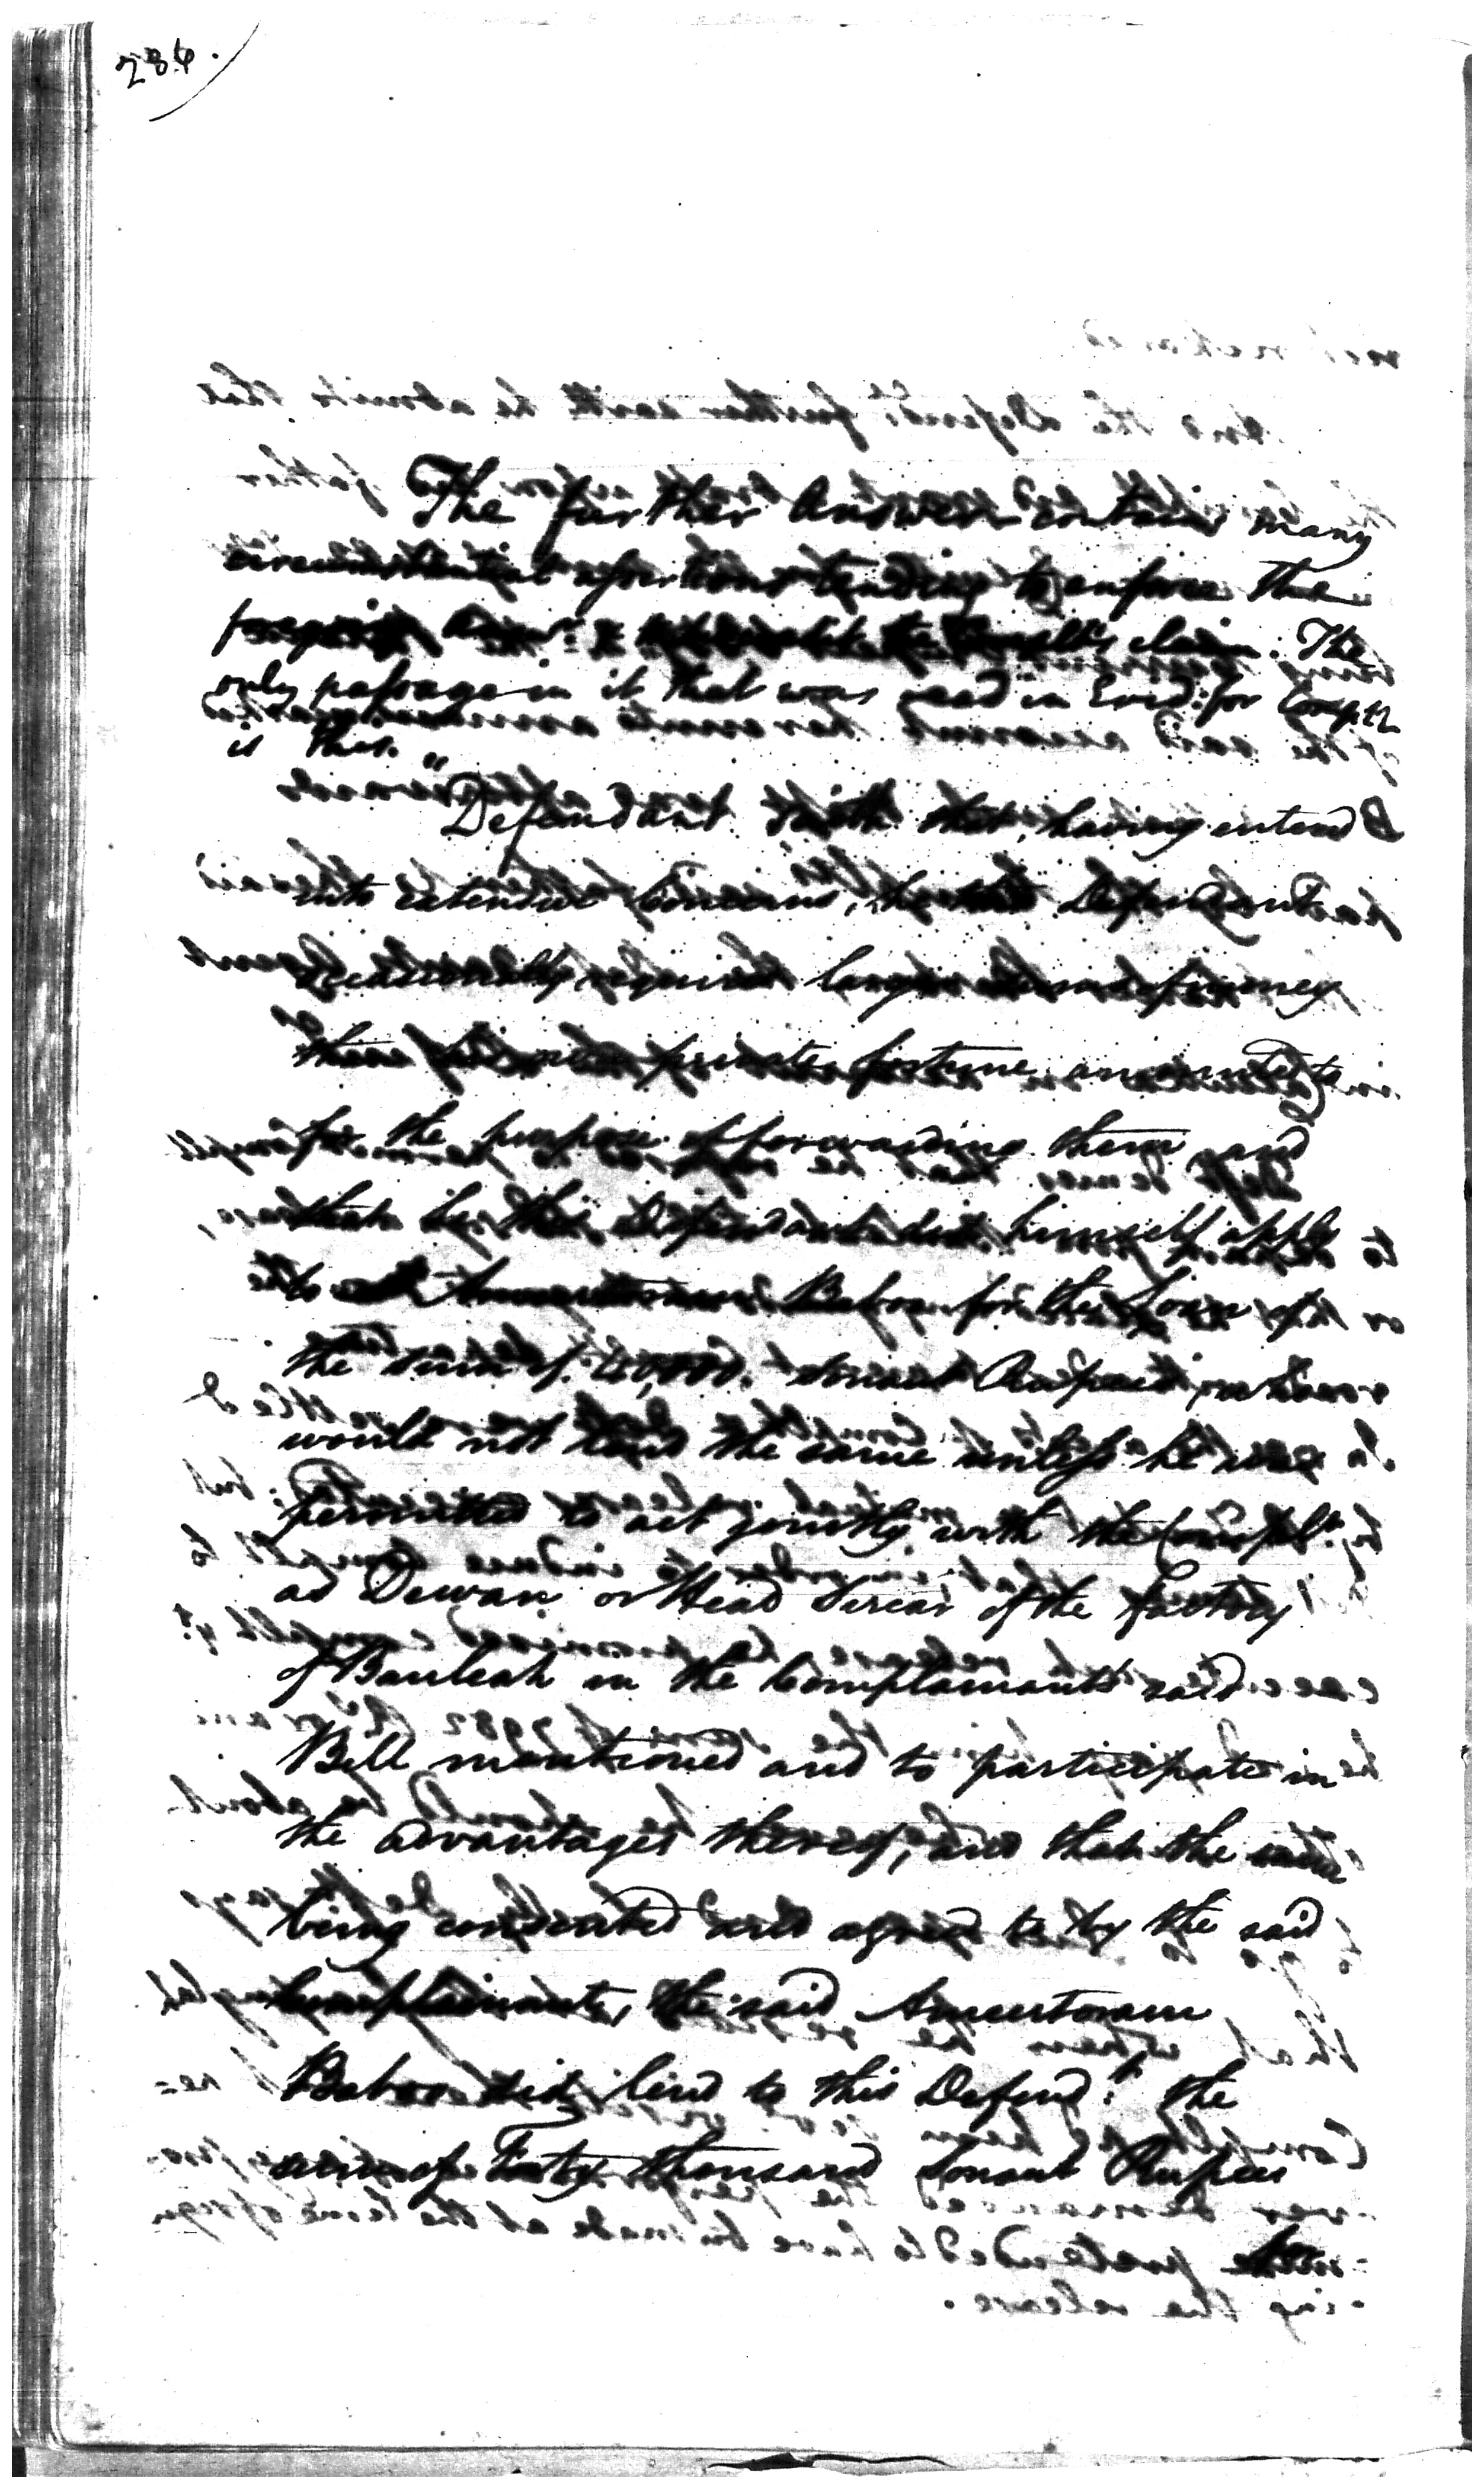 284.
The further Answer contains many
circumstantial assertions tending to enforce the
foregoing Answr. & the Compllts claim. The
only passage in it that was read in Evid: for Complt
is this.
"Defendant saith that, having entered
into extensive Concerns, he this Defendant
occasionally required larger Sums of money
than his own private fortune amounted to
for the purpose of forwarding them and
that he this Defendant did himself apply
to Ameertoram Baboo for the Loan of
the sum of 40,000. Sonaut Rupees, who
would not lend the same unless he was
permitted to act jointly with the Complt.
as Dewan or Head Sircar of the Factory
of Bauleah in the Complainants said
Bill mentioned and to participate in
the advantages thereof, and that the same
being consented and agreed to by the said
Complainants, the said Ameertoram
Baboo did lend to this Defendt. the
sum of Forty thousand Sonaut Rupees